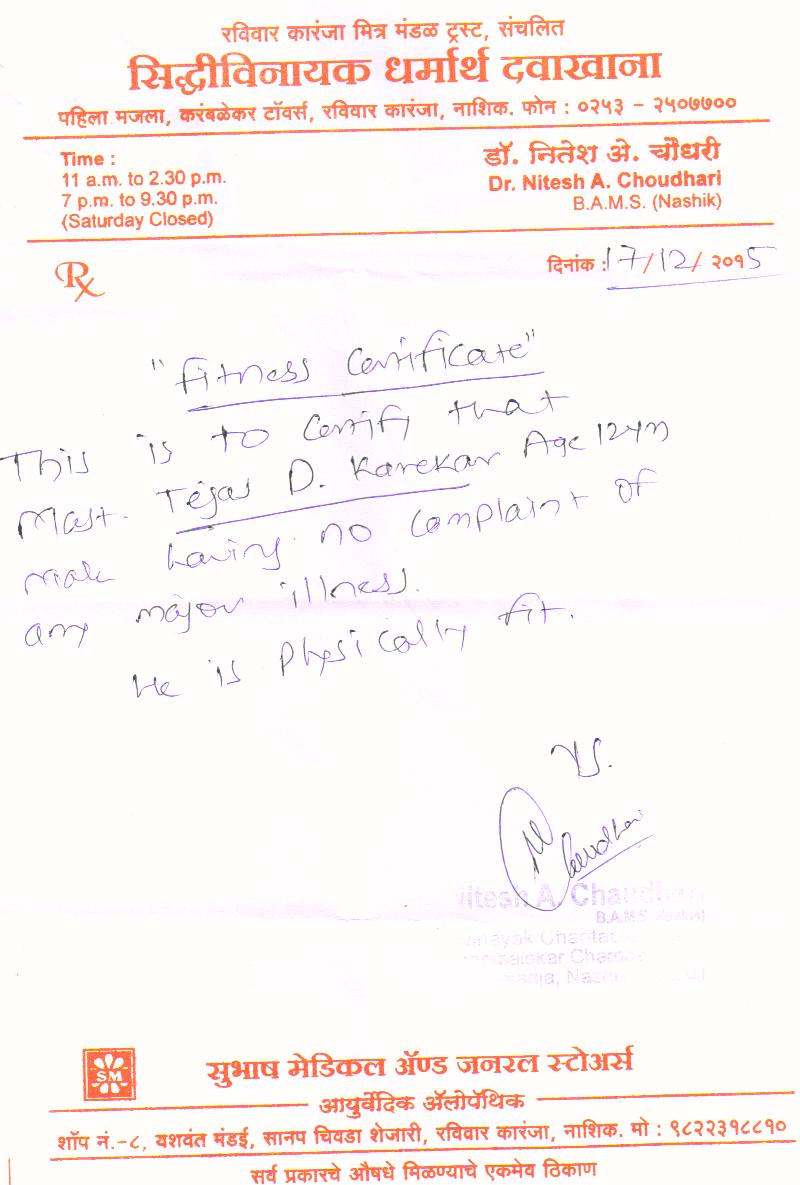 रविवार कारंजा मित्र मंडळ ट्रस्ट, संचलित
सिद्धीविनायक धर्मार्थ दवाखाना
पहिला मजला, करंबळेकर टॉवर्स, रविवार कारंजा, नाशिक. फोन : ०२५३ – २५०७७००
Time :
11 a.m. to 2.30 p.m.
7 p.m. to 9.30 p.m.
(Saturday Closed)
डॉ. नितेश ओ. चौधरी
Dr. Nitesh A. Choudhari
B.A.M.S. (Nashik)
Rx
दिनांक : 17/12/ २०१5
"Fitness Certificate"
This is to certify that
Mast. Tejas D. Karekar Age 12 yrs
male having no complaint of
any major illness.
He is Physically fit.
Nitesh A. Chaudhari
B.A.M.S. (Nashik)
SM
सुभाष मेडिकल ॲण्ड जनरल स्टोअर्स
आयुर्वेदिक ॲलोपॅथिक
शॉप नं.-८, यशवंत मंडई, सानप चिवडा शेजारी, रविवार कारंजा, नाशिक. मो : ९८२२३१८८१०
सर्व प्रकारचे औषधे मिळण्याचे एकमेव ठिकाण